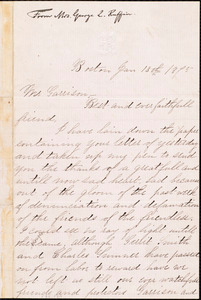 From Mrs. George L. Ruffin
Boston Jan 13th 1875
Mr Garrison,
Best and ever faithfull
friend
I have lain down the paper
containing your letter of yesterday
and taken up my pen to send
you the thanks of a greatfull and
untill now sad heart, but because
out of the gloom of the past week
of denunciation and defamation
of the friends of the friendless,
I could see no ray of light untill
the Dame, although Gerrit Smith
and Charles Sumner have passed
on from labor to reward have we
not left us still one ever watchfull
friend and protector Garrison and